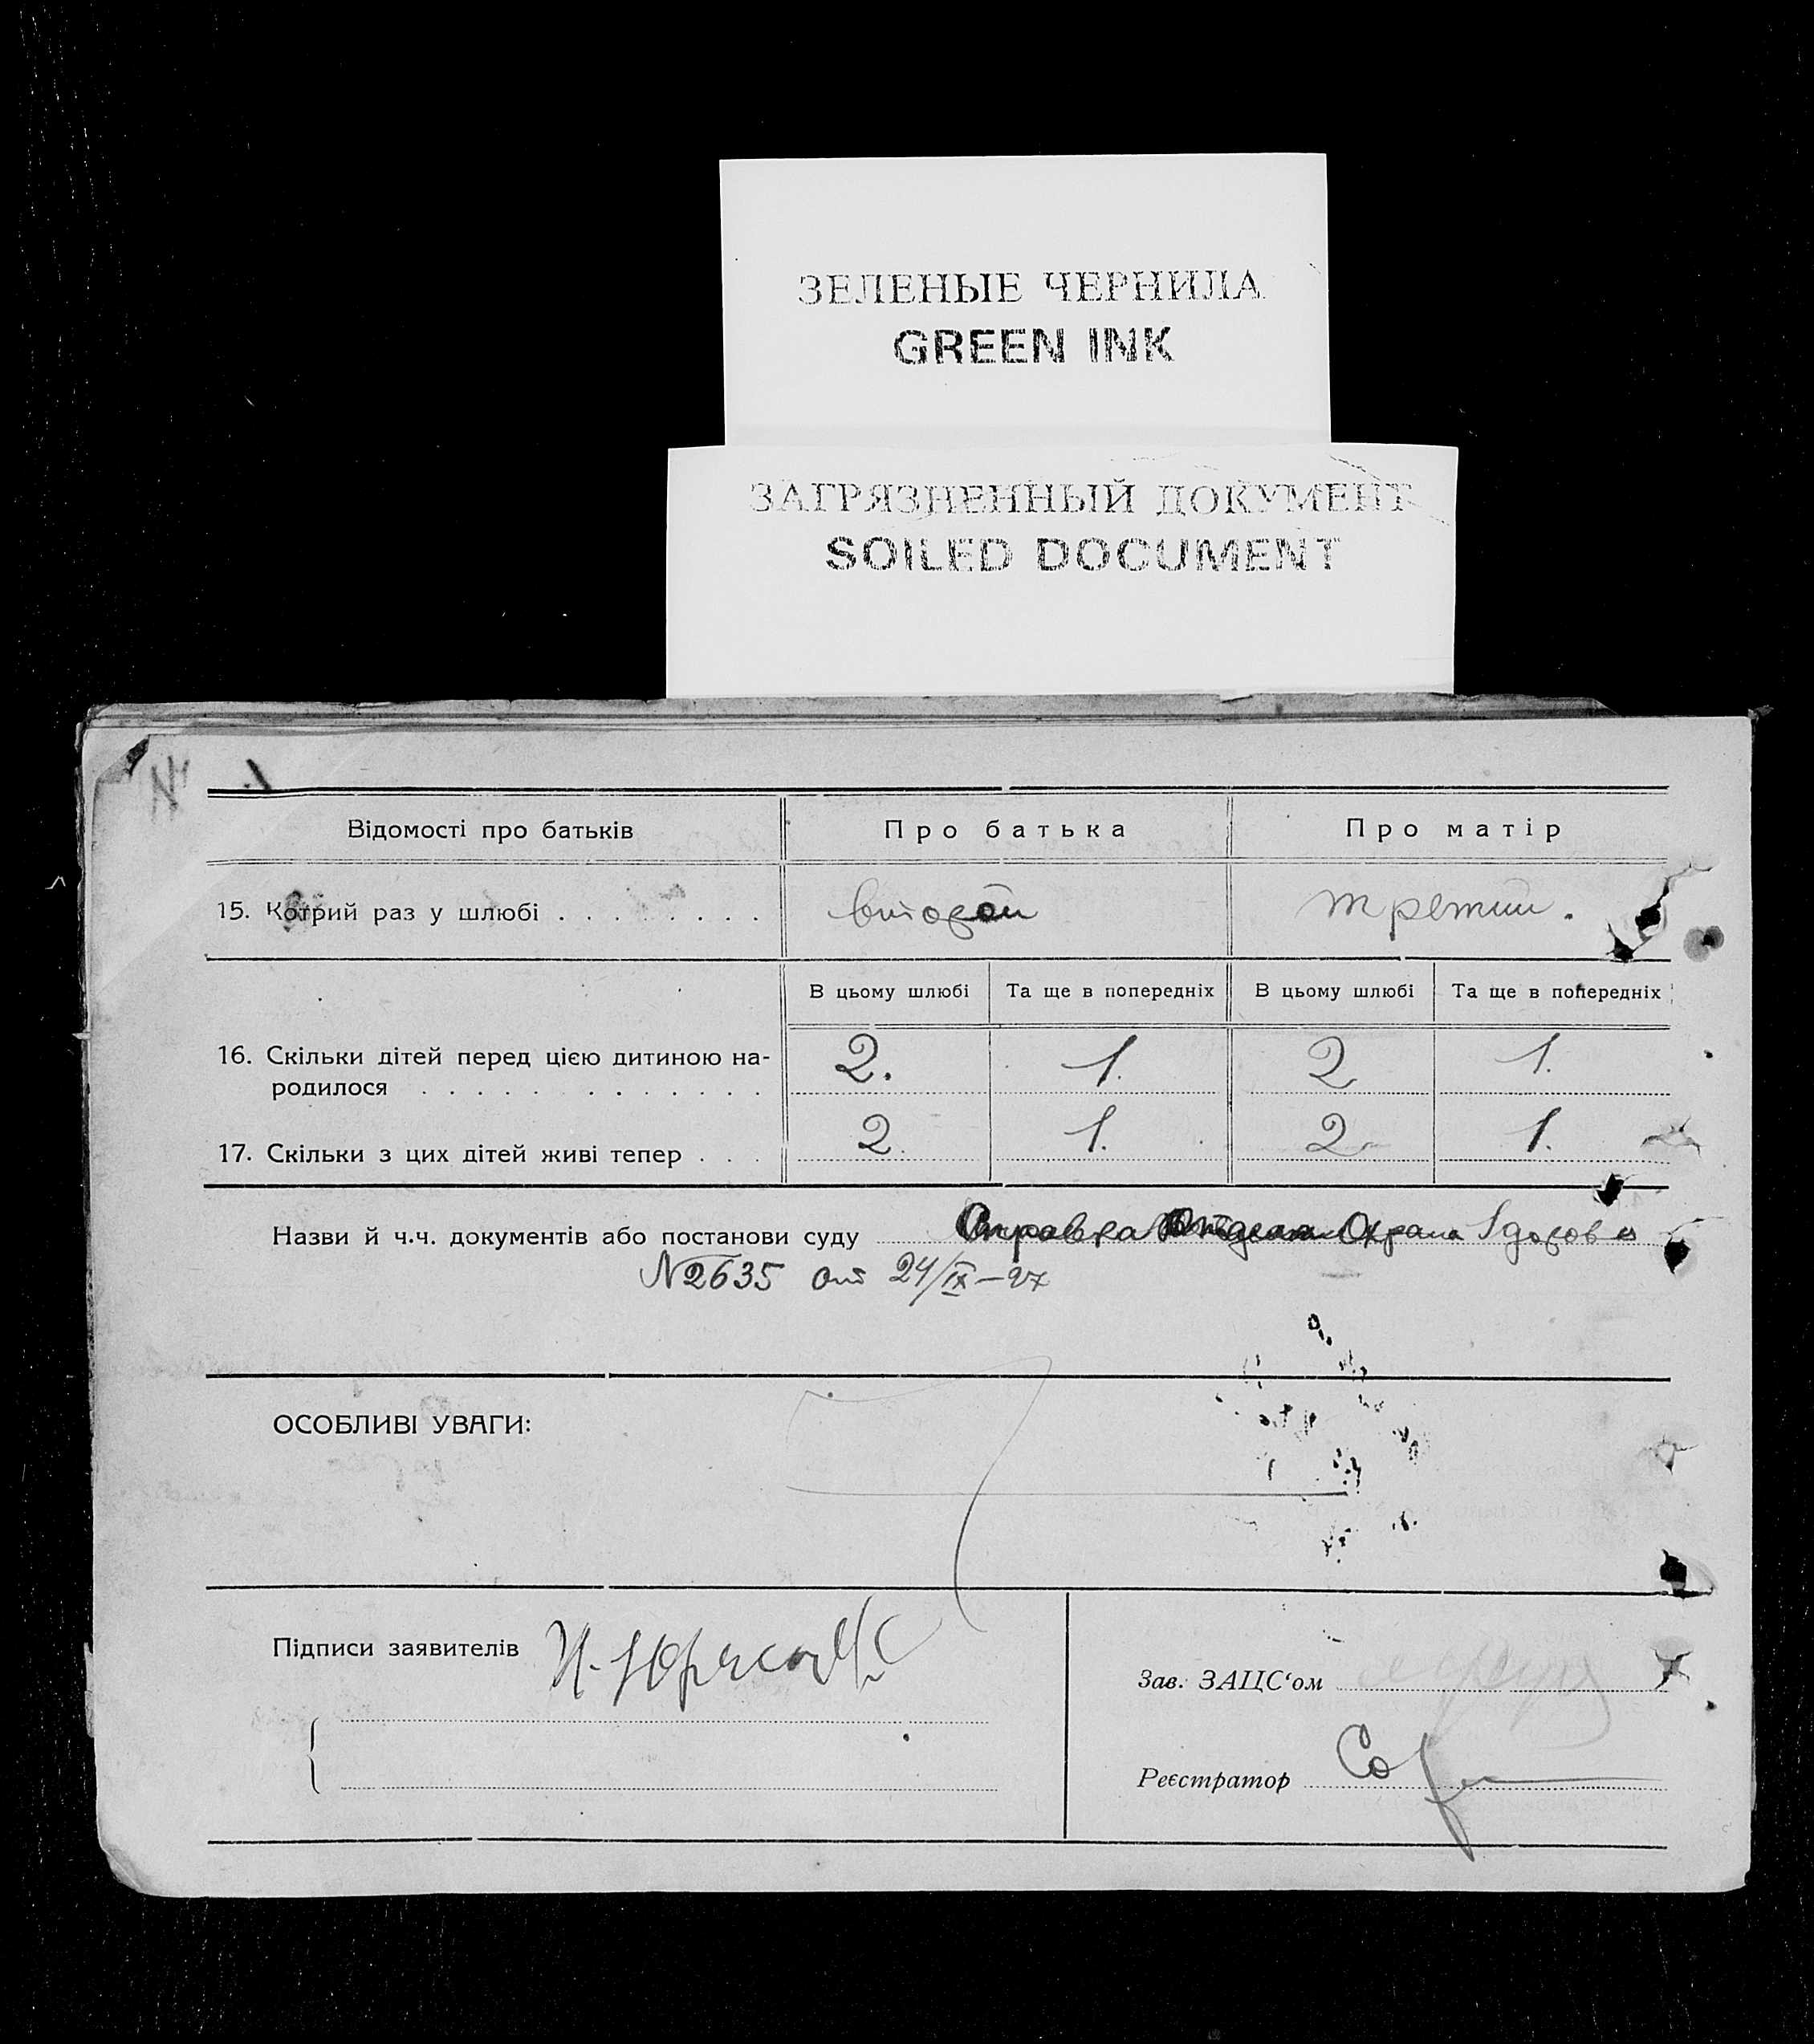 ЗЕЛЕНЫЕ ЧЕРНИЛА
GREEN INK
ЗАГРЯЗНЕННЫЙ ДОКУМЕНТ
SOILED DOCUMENT
Відомості про батьків Про батька Про матір
15. Котрий раз у шлюбі . . . . . . . . второй третий.
В цьому шлюбі Та ще в попередніх В цьому шлюбі Та ще в попередніх
16. Скільки дітей перед цією дитиною на- 2. 1. 2 1.
родилося . . . . . . . . . . . . .
17. Скільки з цих дітей живі тепер . . . 2 1. 2 1.
Назви й ч.ч. документів або постанови суду Справка Охрана Здоровя
№2635 от 24/IX-27
ОСОБЛИВІ УВАГИ:
Підписи заявителів
Зав. ЗАЦС‘ом
Реєстратор